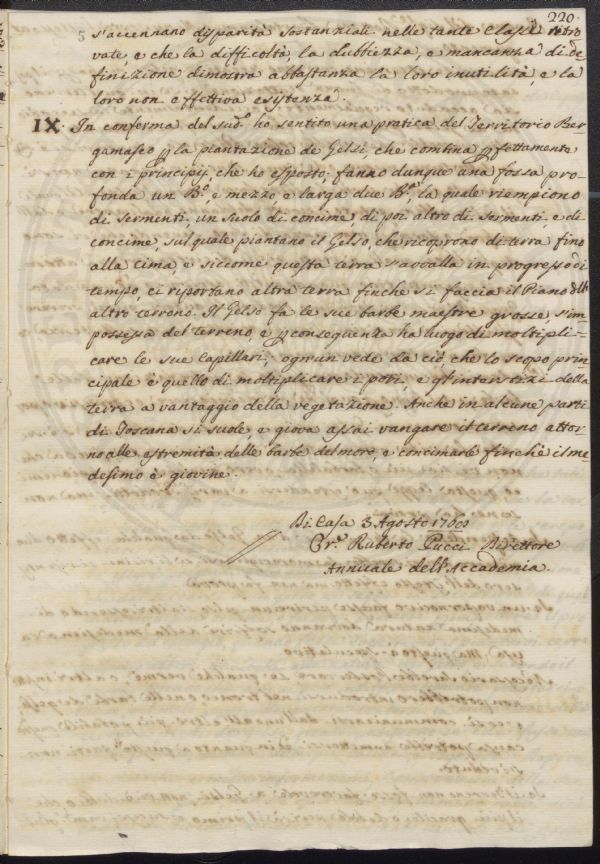 220.
5 s'accennano disparità sostanziali nelle tante Classi ritro
vate, e che la difficoltà, la dubbiezza, e mancanza di de
finizione dimostra abbastanza la loro inutilità, e la
loro non effettiva esistenza.
IX. In conferma del sud.º ho sentito una pratica del Territorio Ber
gamasco p la piantazione de Gelsi, che combina pfettamente
con i principij, che ho esposto; fanno dunque una fossa pro-
fonda un B.º, e mezzo, e larga due B.ª, la quale riempiono
di sermenti, un suolo di concime, di poi altro di sermenti, e di
concime, sul quale piantano il Gelso, che ricoprono di terra fino
alla cima, e siccome questa terra s'avvalla in progresso di
tempo, ci riportano altra terra finche si faccia il Piano dell'
altro terreno. Il Gelso fa le sue barbe maestre grosse s'im
possessa del terreno, e p conseguenza ha luogo di moltipli-
care le sue capillari; ognun vede da ciò, che lo scopo prin-
cipale è quello di moltiplicare i pori, e gl'interstizi della
terra a vantaggio della vegetazione. Anche in alcune parti
di Toscana si suole, e giova assai vangare il terreno attor-
no alle estremità delle barbe del moro, e concimarle finchè il me-
desimo è giovine.
Di Casa 3 Agosto
Ruberto Pucci Direttore
Annuale dell'Accademia.